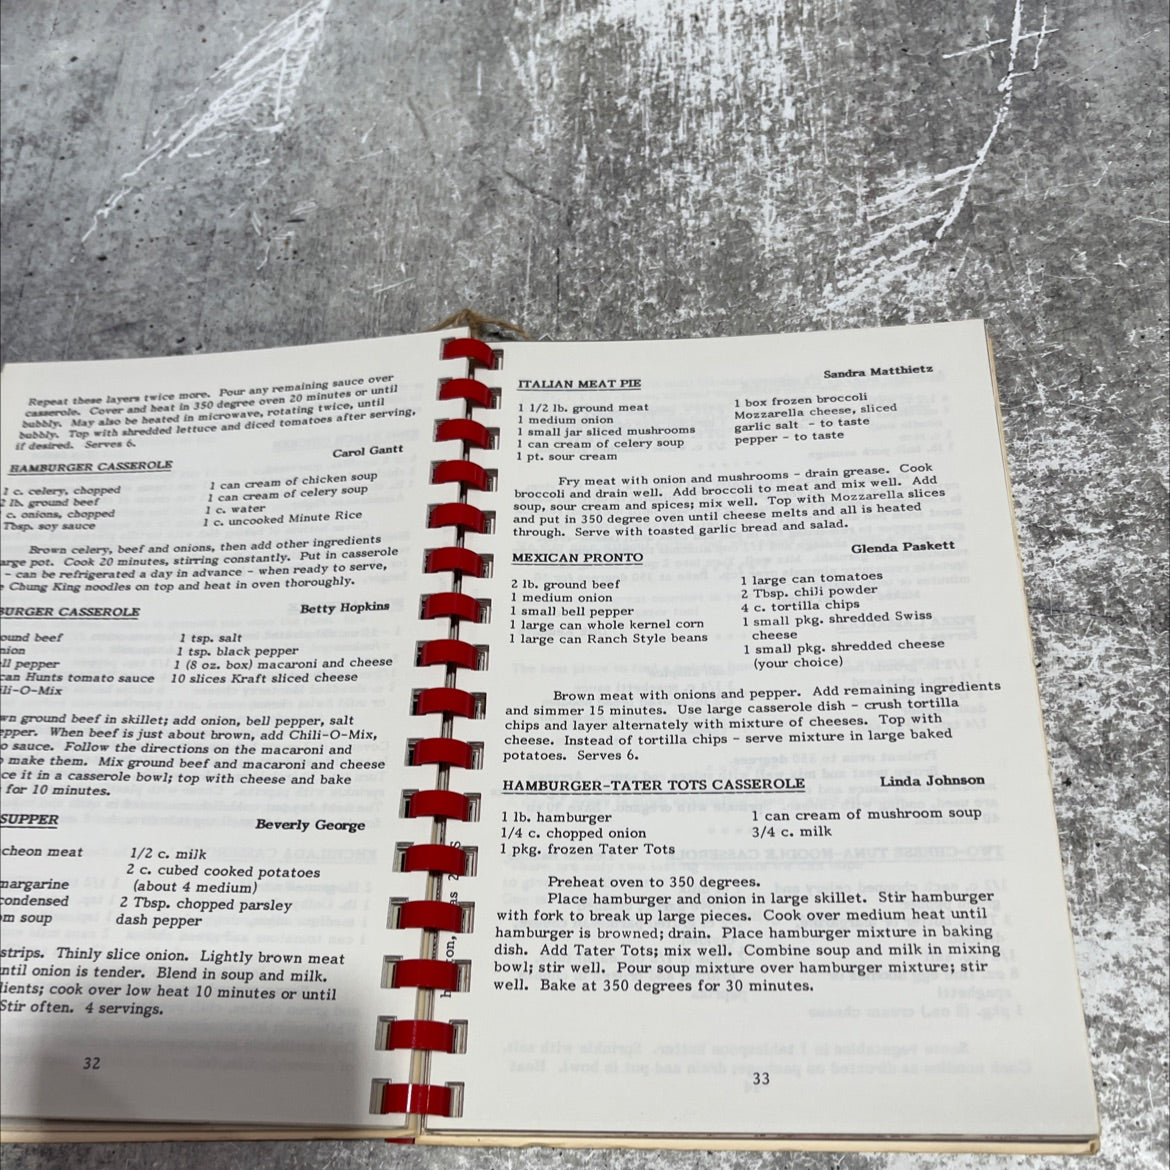 Repeat these layers twice more. Pour any remaining sauce over
casserole. Cover and heat in 350 degree oven 20 minutes or until
bubbly. May also be heated in microwave, rotating twice, until
bubbly. Top with shredded lettuce and diced tomatoes after serving,
if desired. Serves 6.
Carol Gantt
HAMBURGER CASSEROLE
1 c. celery, chopped
2 lb. ground beef
c. onions, chopped
Tbsp. soy sauce
1 can cream of chicken soup
1 can cream of celery soup
1 c. water
1 c. uncooked Minute Rice
Brown celery, beef and onions, then add other ingredients
arge pot. Cook 20 minutes, stirring constantly. Put in casserole
- can be refrigerated a day in advance - when ready to serve,
Chung King noodles on top and heat in oven thoroughly.
Betty Hopkins
BURGER CASSEROLE
ound beef
nion
ll pepper
can Hunts tomato sauce
ili-O-Mix
1 tsp. salt
1 tsp. black pepper
1 (8 oz. box) macaroni and cheese
10 slices Kraft sliced cheese
wn ground beef in skillet; add onion, bell pepper, salt
epper. When beef is just about brown, add Chili-O-Mix,
o sauce. Follow the directions on the macaroni and
make them. Mix ground beef and macaroni and cheese
ce it in a casserole bowl; top with cheese and bake
for 10 minutes.
SUPPER
Beverly George
cheon meat
margarine
condensed
m soup
1/2 c. milk
2 c. cubed cooked potatoes
(about 4 medium)
2 Tbsp. chopped parsley
dash pepper
strips. Thinly slice onion. Lightly brown meat
ntil onion is tender. Blend in soup and milk.
ients; cook over low heat 10 minutes or until
Stir often. 4 servings.
32
ITALIAN MEAT PIE
Sandra Matthietz
1 1/2 lb. ground meat
1 medium onion
1 small jar sliced mushrooms
1 can cream of celery soup
1 pt. sour cream
1 box frozen broccoli
Mozzarella cheese, sliced
garlic salt - to taste
pepper - to taste
Fry meat with onion and mushrooms - drain grease. Cook
broccoli and drain well. Add broccoli to meat and mix well. Add
soup, sour cream and spices; mix well. Top with Mozzarella slices
and put in 350 degree oven until cheese melts and all is heated
through. Serve with toasted garlic bread and salad.
MEXICAN PRONTO
Glenda Paskett
2 lb. ground beef
1 medium onion
1 small bell pepper
1 large can whole kernel corn
1 large can Ranch Style beans
1 large can tomatoes
2 Tbsp. chili powder
4 c. tortilla chips
1 small pkg. shredded Swiss
cheese
1 small pkg. shredded cheese
(your choice)
Brown meat with onions and pepper. Add remaining ingredients
and simmer 15 minutes. Use large casserole dish - crush tortilla
chips and layer alternately with mixture of cheeses. Top with
cheese. Instead of tortilla chips - serve mixture in large baked
potatoes. Serves 6.
HAMBURGER-TATER TOTS CASSEROLE
Linda Johnson
1 lb. hamburger
1/4 c. chopped onion
1 pkg. frozen Tater Tots
1 can cream of mushroom soup
3/4 c. milk
Preheat oven to 350 degrees.
Place hamburger and onion in large skillet. Stir hamburger
with fork to break up large pieces. Cook over medium heat until
hamburger is browned; drain. Place hamburger mixture in baking
dish. Add Tater Tots; mix well. Combine soup and milk in mixing
bowl; stir well. Pour soup mixture over hamburger mixture; stir
well. Bake at 350 degrees for 30 minutes.
33